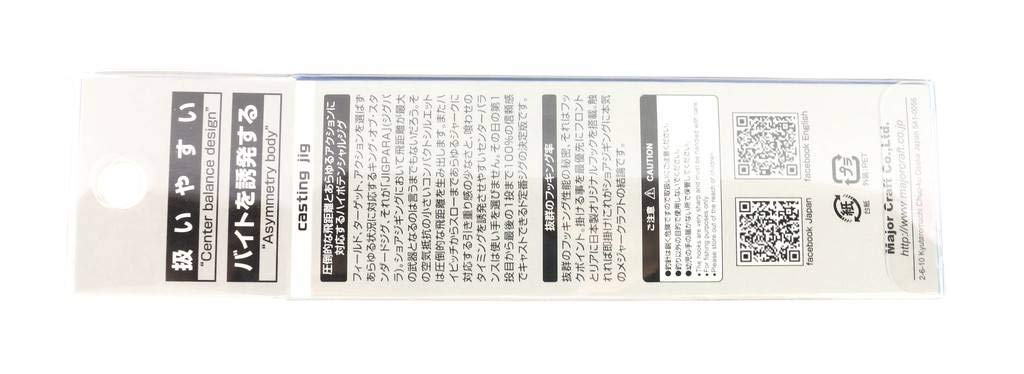 扱いやすい
"Center balance design"
バイトを誘発する
"Asymmetry body"
casting jig
圧倒的な飛距離とあらゆるアクションに
対応するハイポテンシャルジグ
フィールド、ターゲット、アクションを選ばず
あらゆる状況に対応するキング・オブ・スタ
ンダードジグ、それが「JIGPARA」(ジグパ
ラ)。ショアジギングにおいて飛距離が最大
の武器となるのは言うまでもないだろう。そ
の空気抵抗の小さいコンパクトシルエット
は圧倒的な飛距離を生み出します。またハ
イピッチからスローまであらゆるジャークに
対応する引き重り感の少なさと、喰わせの
タイミングを誘発させやすいセンターバラ
ンスは使い手を選びません。その日の第1
投目から最後の1投まで100%の信頼感
でキャストできるド定番ジグの決定版です。
抜群のフッキング率
抜群のフッキング性能の秘密、それはフッ
クポイント、掛ける事を最優先にフロント
とリアに日本製オリジナルフックを搭載。触
れれば即掛け!これがショアジギングに本気
のメジャークラフトの結論です。
ご注意 CAUTION
●釣針は鋭く危険ですので取扱いにご注意ください。
●釣り以外の目的で使用しないでください。
●幼児の手の届かない所で保管してください。
●The hooks are very sharp
●For fishing purposes only.
●Please store out of the reach of children.
facebook Japan
facebook English
紙
台紙
プラ
外袋:PET
Major Craft Co.,Ltd.
http://www.majorcraft.co.jp
2-6-10 Kyutaromachi Chuo-ku Osaka Japan 541-0056